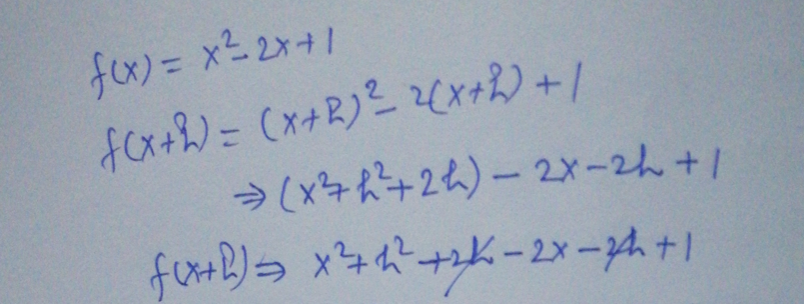 f(x) = x² - 2x + 1
f(x+h) = (x+h)² - 2(x+h) + 1
⇒ (x² + h² + 2h) - 2x - 2h + 1
f(x+h) ⇒ x² + h² + 2h - 2x - 2h + 1